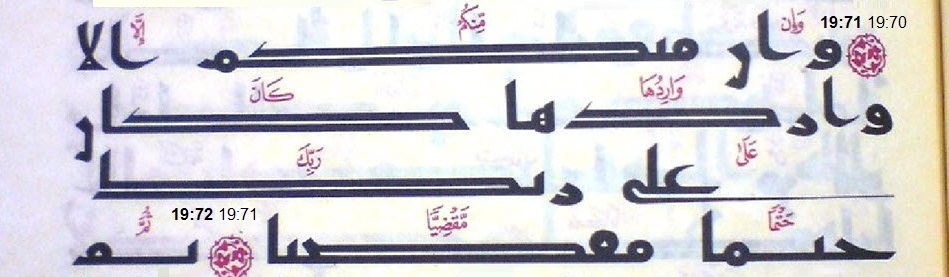 19:70 19:71 وَإِن مِّنكُمْ إِلَّا
وان منكم الا
وَارِدُهَا كَانَ
واردها كان
عَلَىٰ رَبِّكَ
على ربك
حَتْمًا مَّقْضِيًّا 19:71 19:72 ثُمَّ
حتما مقضيا ثم